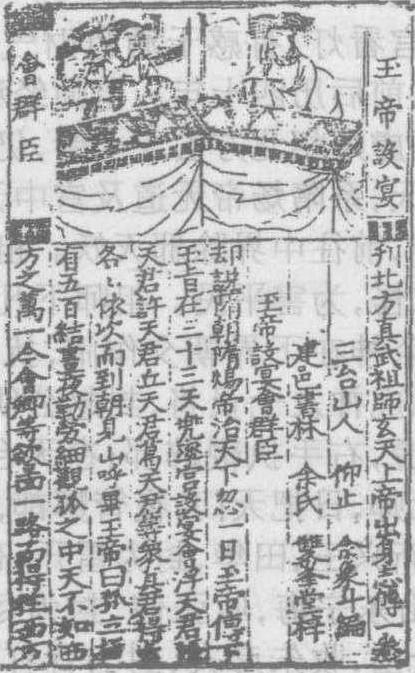 玉帝設宴
會群臣
刋北方真武祖師玄天上帝出身志傳一卷
三台山人 仰止 余象斗編
建邑書林 余氏 雙峯堂梓
玉帝設宴會群臣
却説隋朝隋煬帝治天下忽一日玉帝傳下
玉旨在三十三天兜率宮設宴會浮天君
天君許天君丘天君葛天君等衆真君得
各〻依次而到朝見山呼畢玉帝曰孤立極
有五百結晝夜勤勞細觀孤之中天不如西
方之萬一今會卿等欲面一路 西方